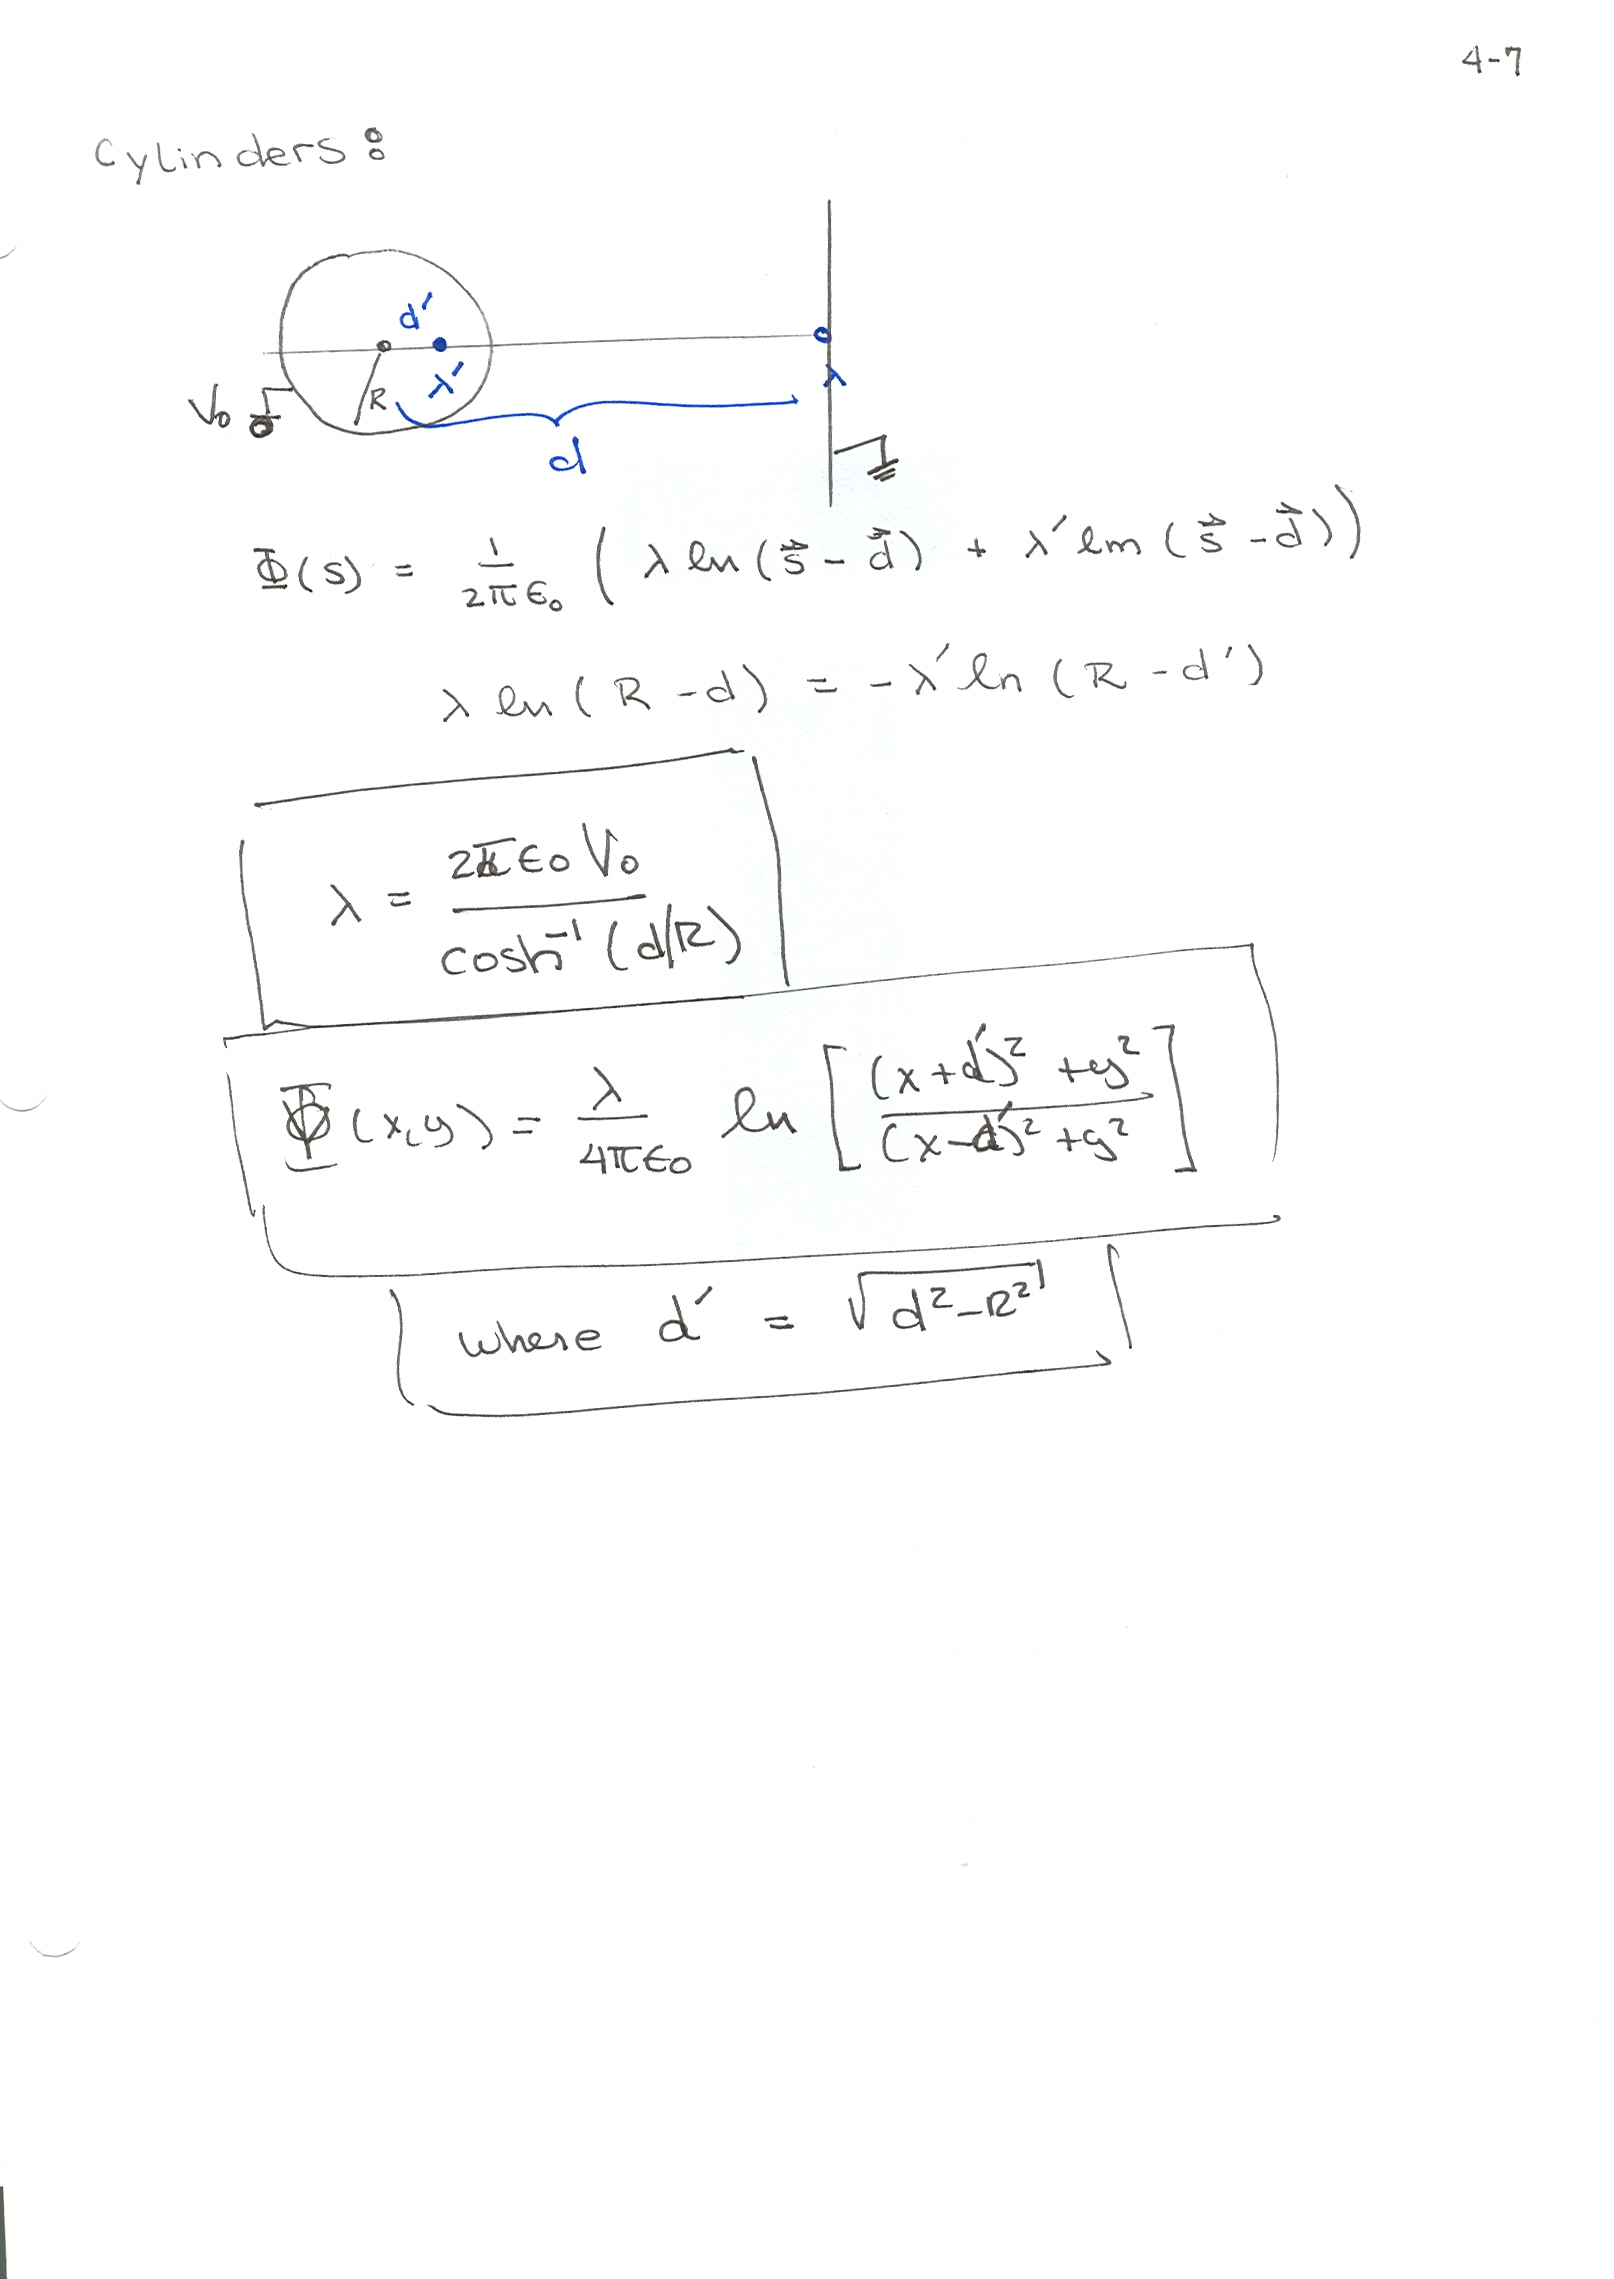 4-7
Cylinders:
d′
λ′
R
λ
V₀
d
Φ(s) = 1/(2πε₀) (λ ln(s⃗ - d⃗) + λ′ lm(s⃗ - d⃗))
λ ln(R - d) = -λ′ ln(R - d′)
λ = 2πε₀V₀ / cosh⁻¹(d/R)
Φ(x,y) = λ/(4πε₀) ln [((x+d′)² + y²) / ((x-d′)² + y²)]
where d′ = √(d² - R²)